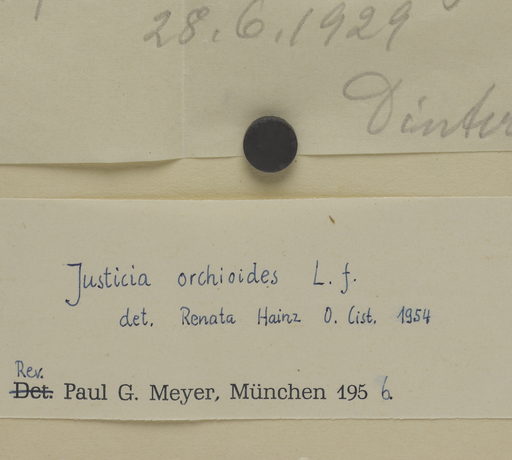 28.6.1929
Dinter
Justicia orchioides L. f.
det. Renata Hainz O. Cist. 1954
Rev.
Det. Paul G. Meyer, München 1956.